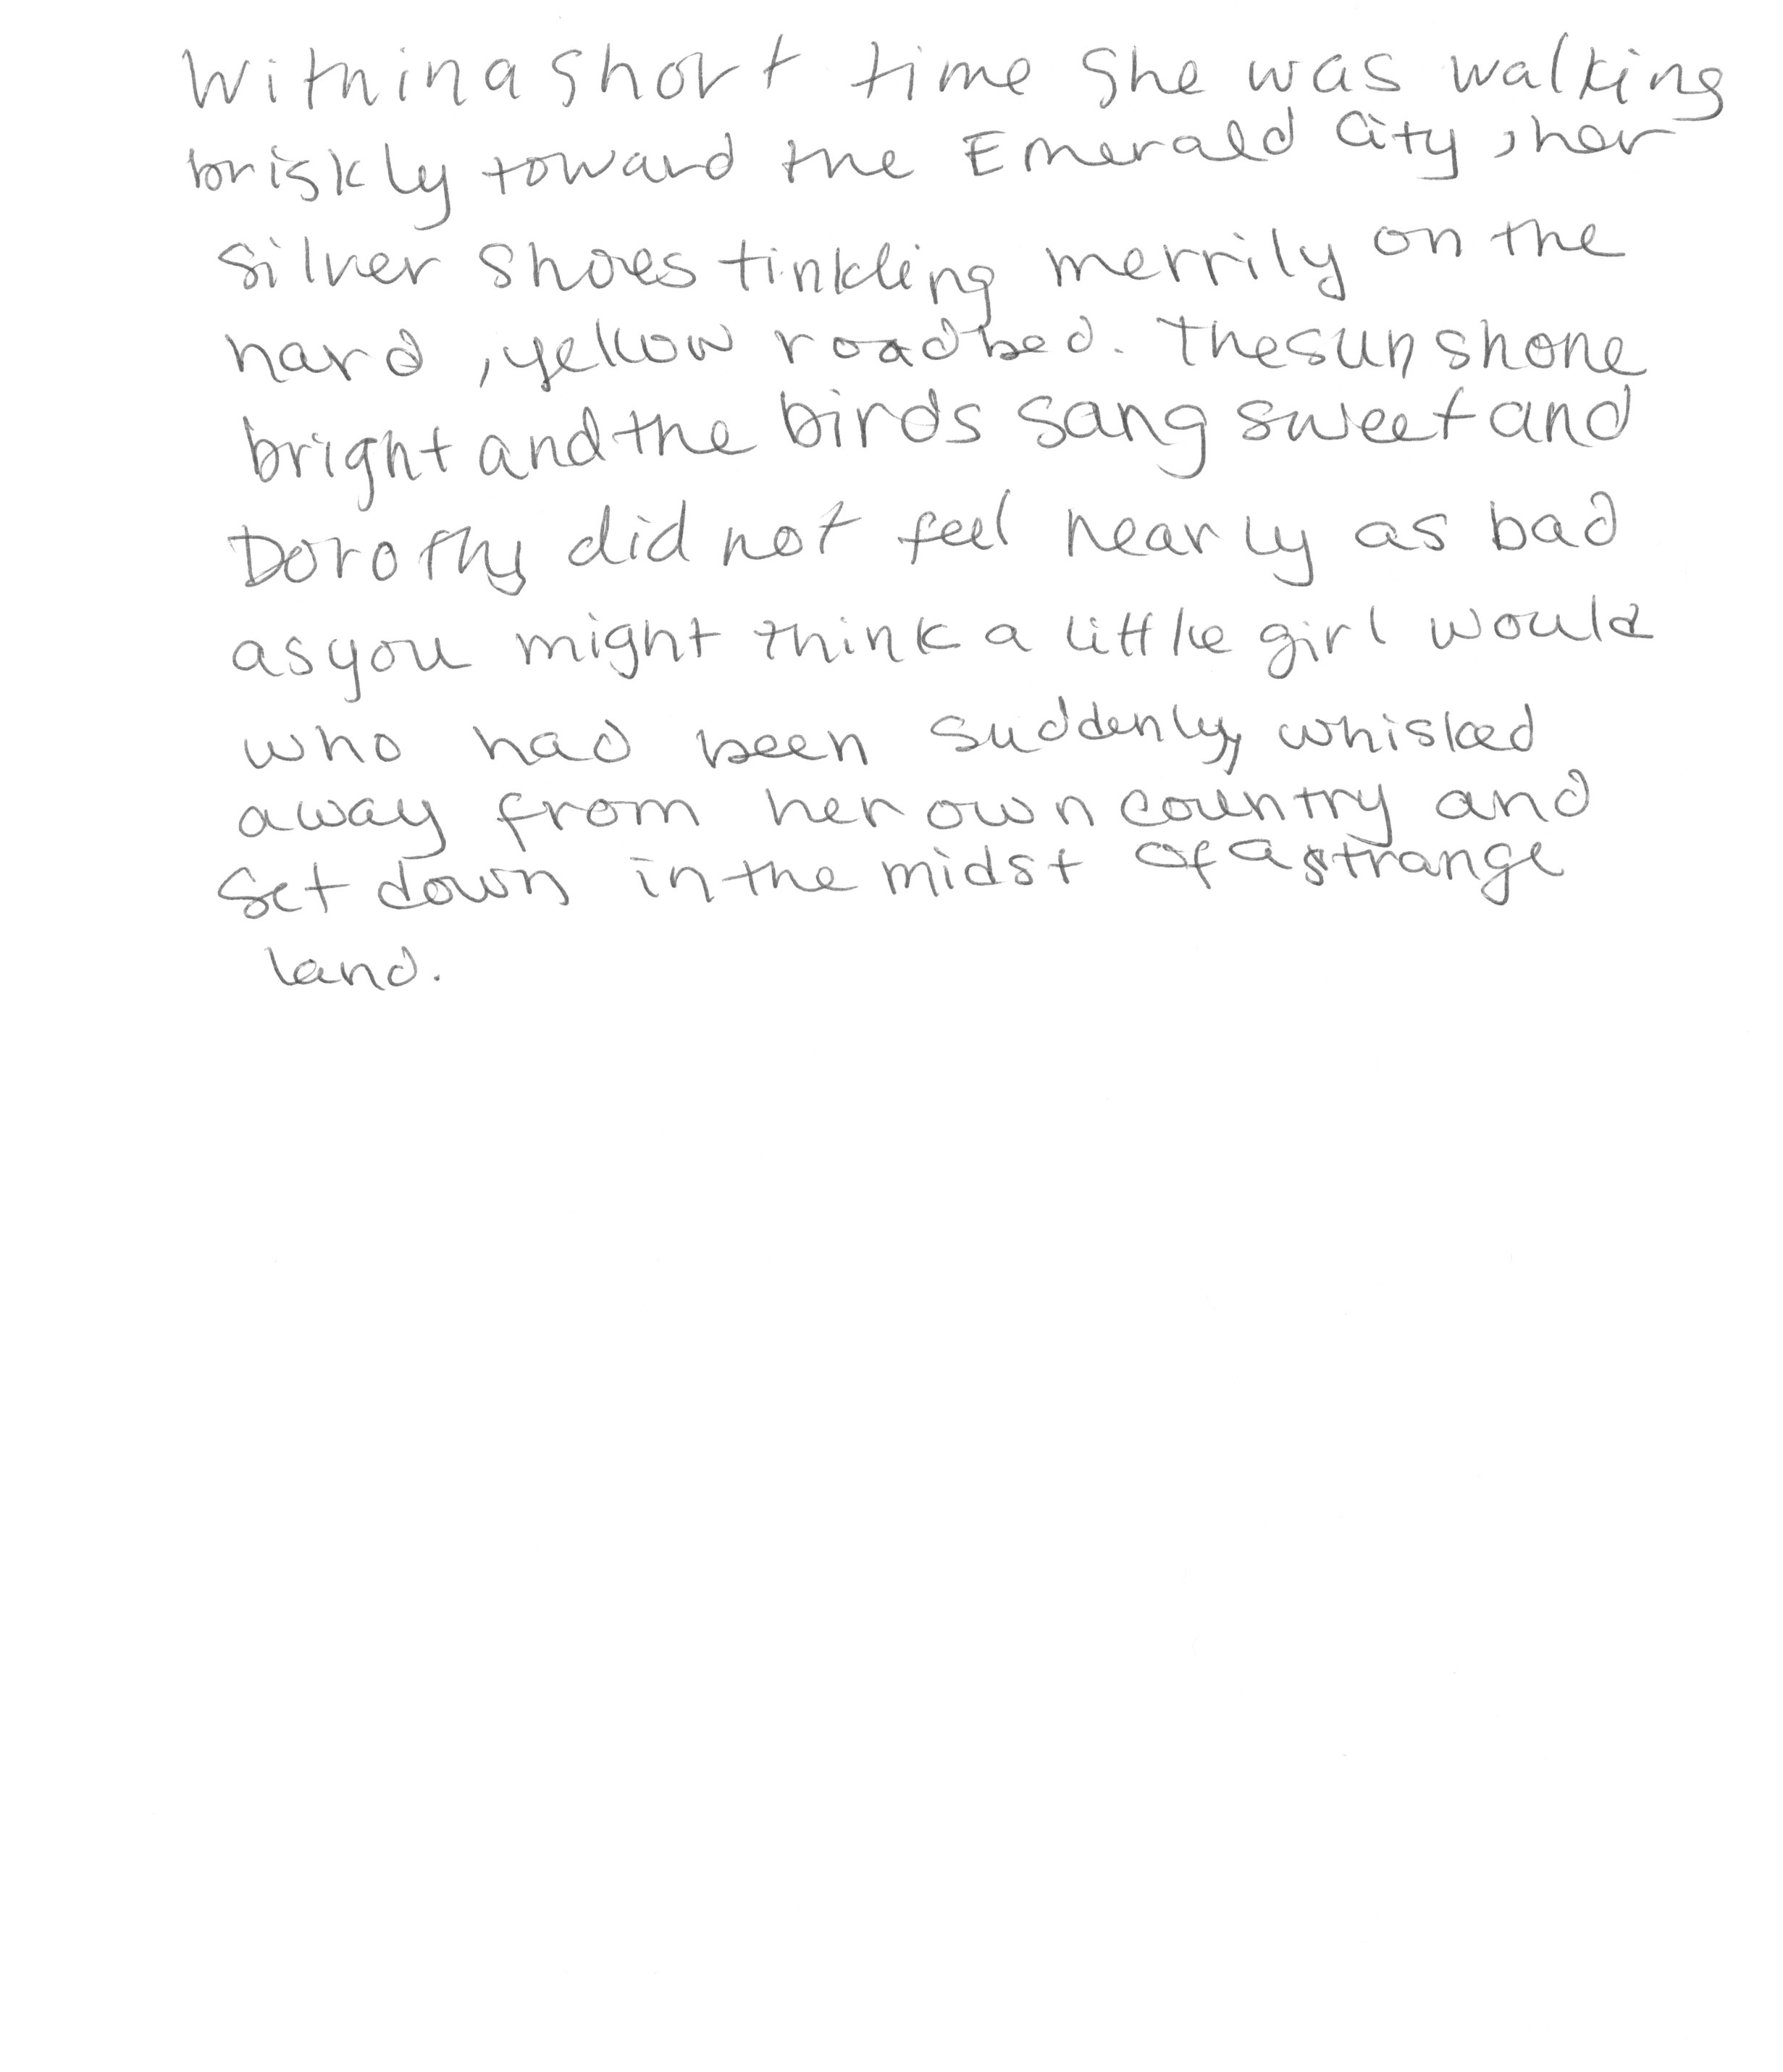 Within a short time she was walking
briskly toward the Emerald City, her
silver shoes tinkling merrily on the
hard, yellow roadbed. The sun shone
bright and the birds sang sweet and
Dorothy did not feel nearly as bad
as you might think a little girl would
who had been suddenly whisked
away from her own country and
set down in the midst of a strange
land.